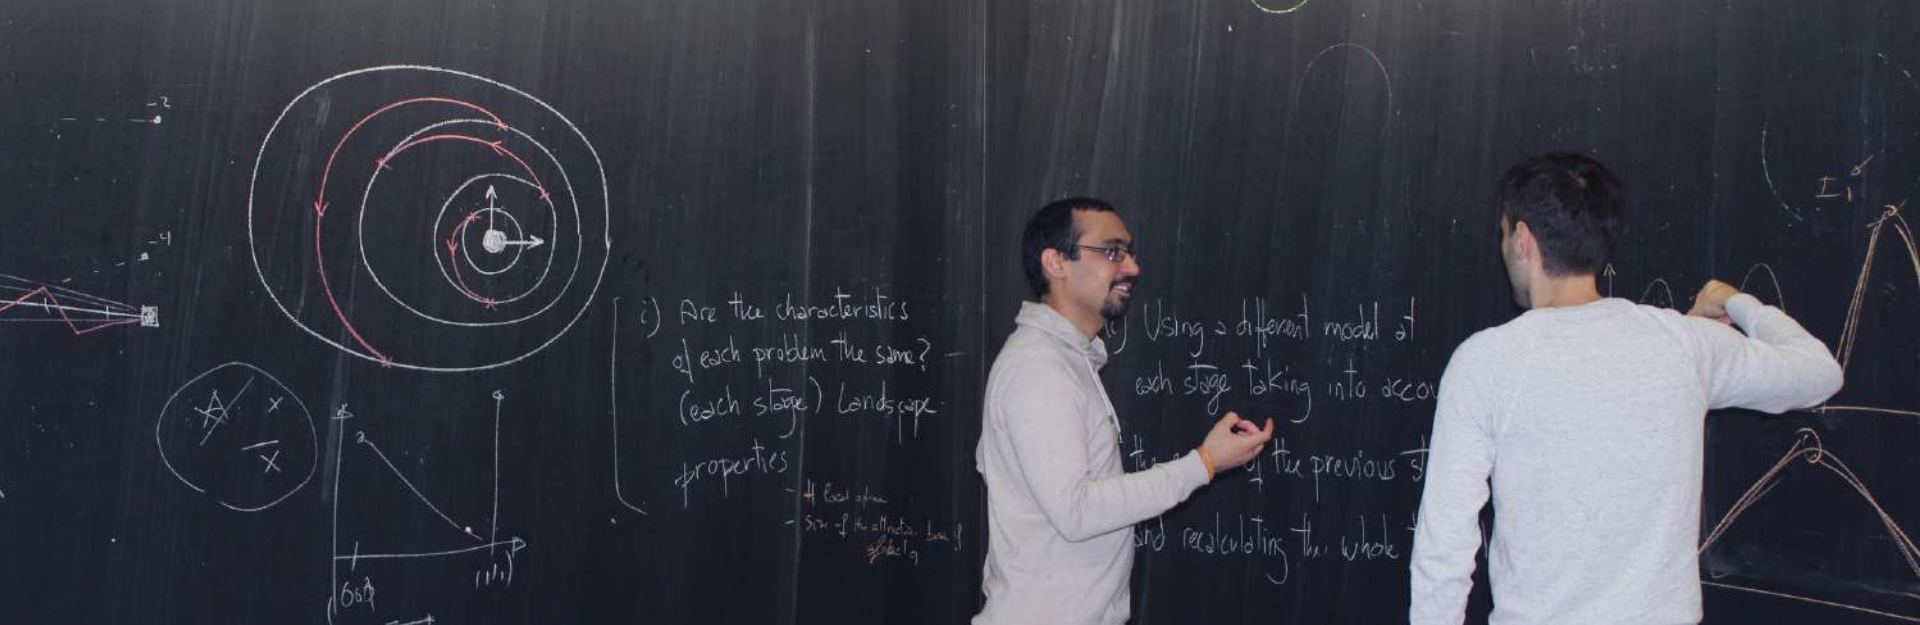 -2
-4
i) Are the characteristics
of each problem the same?
(each stage) Landscape
properties
- # local optima
- Size of the attractor
Using a different model at
each stage taking into accou
the of the previous st
and recalculating the whole
I1
A x
x